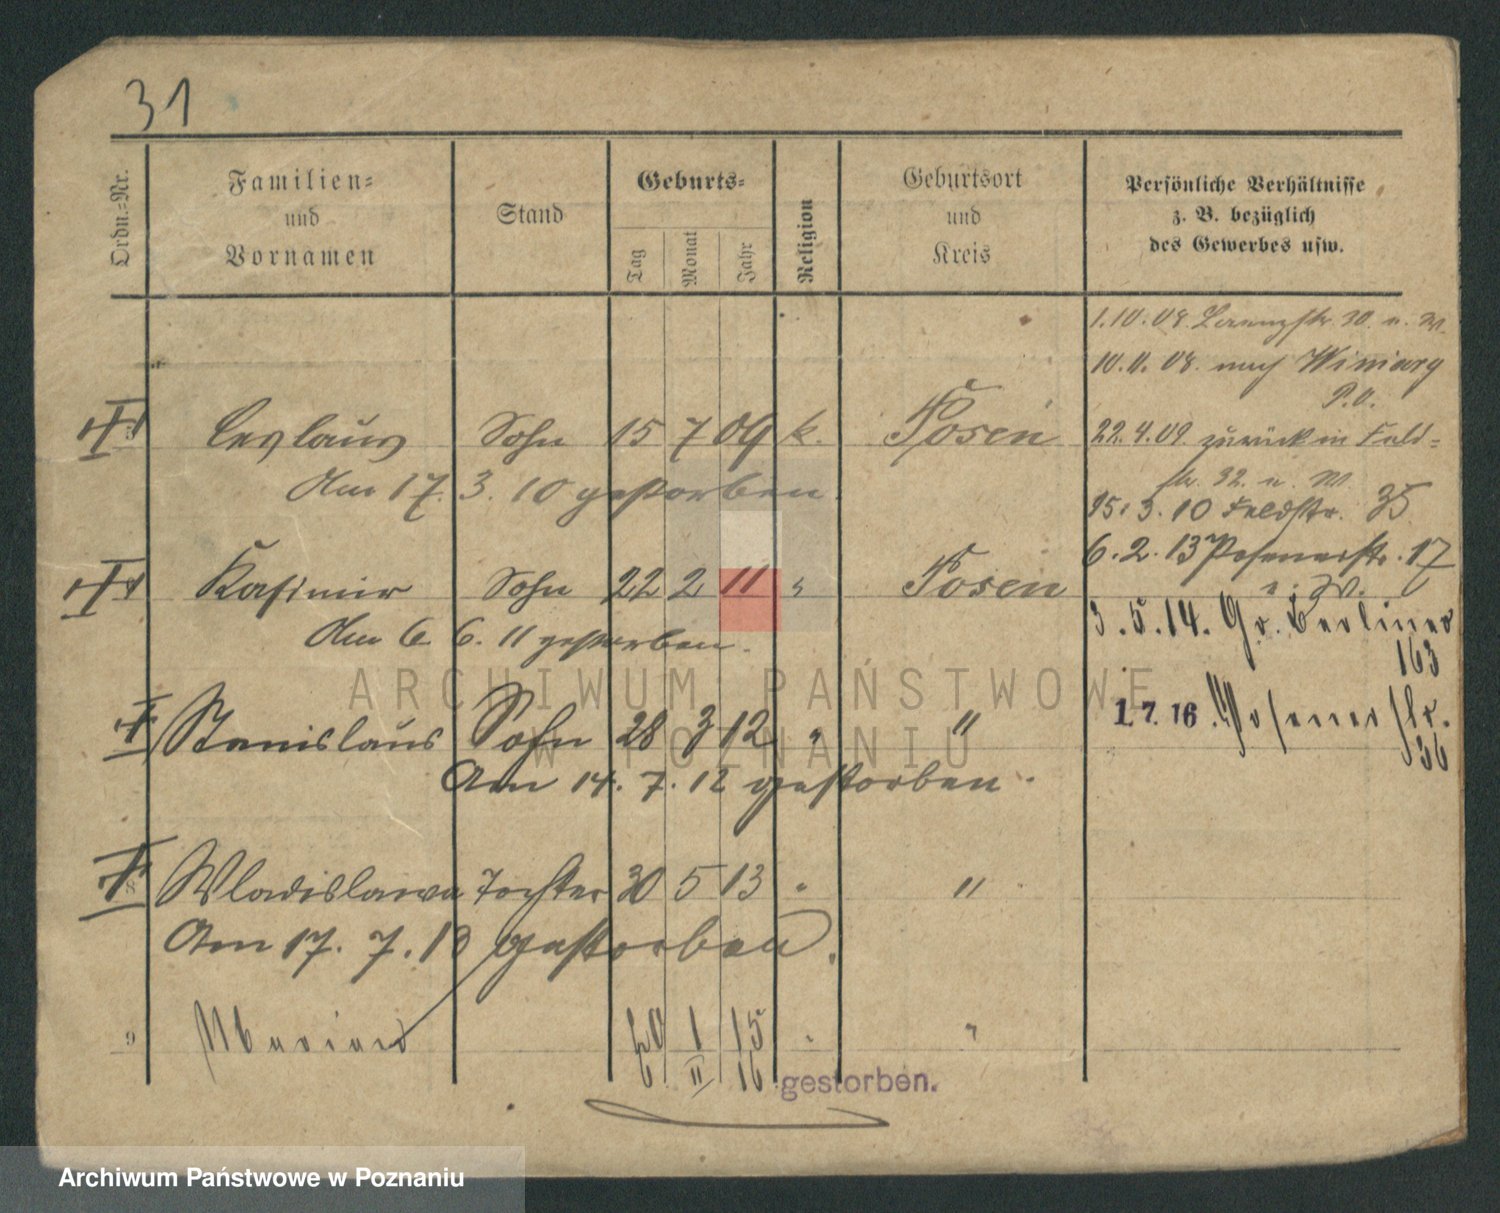 31
Ordn.-Nr.
Familien-
und
Vornamen
Stand
Geburts-
Tag
Monat
Jahr
Religion
Geburtsort
und
Kreis
Persönliche Verhältnisse
z. B. bezüglich
des Gewerbes usw.
1.10.08. 30 u. W.
10.11.08. nach Winiary
P.O.
Ceslaus Sohn 15 7 09 k. Posen
22.4.09 zurück in Feld-
str. 32. u. W.
Am 17. 3. 10 gestorben.
15.3.10 Feldstr. 35
6.2.13 Posenerstr. 17
u. W.
Kasimir Sohn 22 2 11 " Posen
3.5.14. Gr. Berliner
163
Am 6. 6. 11 gestorben.
Stanislaus Sohn 28 3 12 " "
1.7.16. Posenerstr.
56
Am 14. 7. 12 gestorben.
8 Wladislawa Tochter 30 5 13 " "
Am 17. 7. 13 gestorben.
9 Marian 1 15 " "
6 II 16 gestorben.
ARCHIWUM PAŃSTWOWE
W POZNANIU
Archiwum Państwowe w Poznaniu